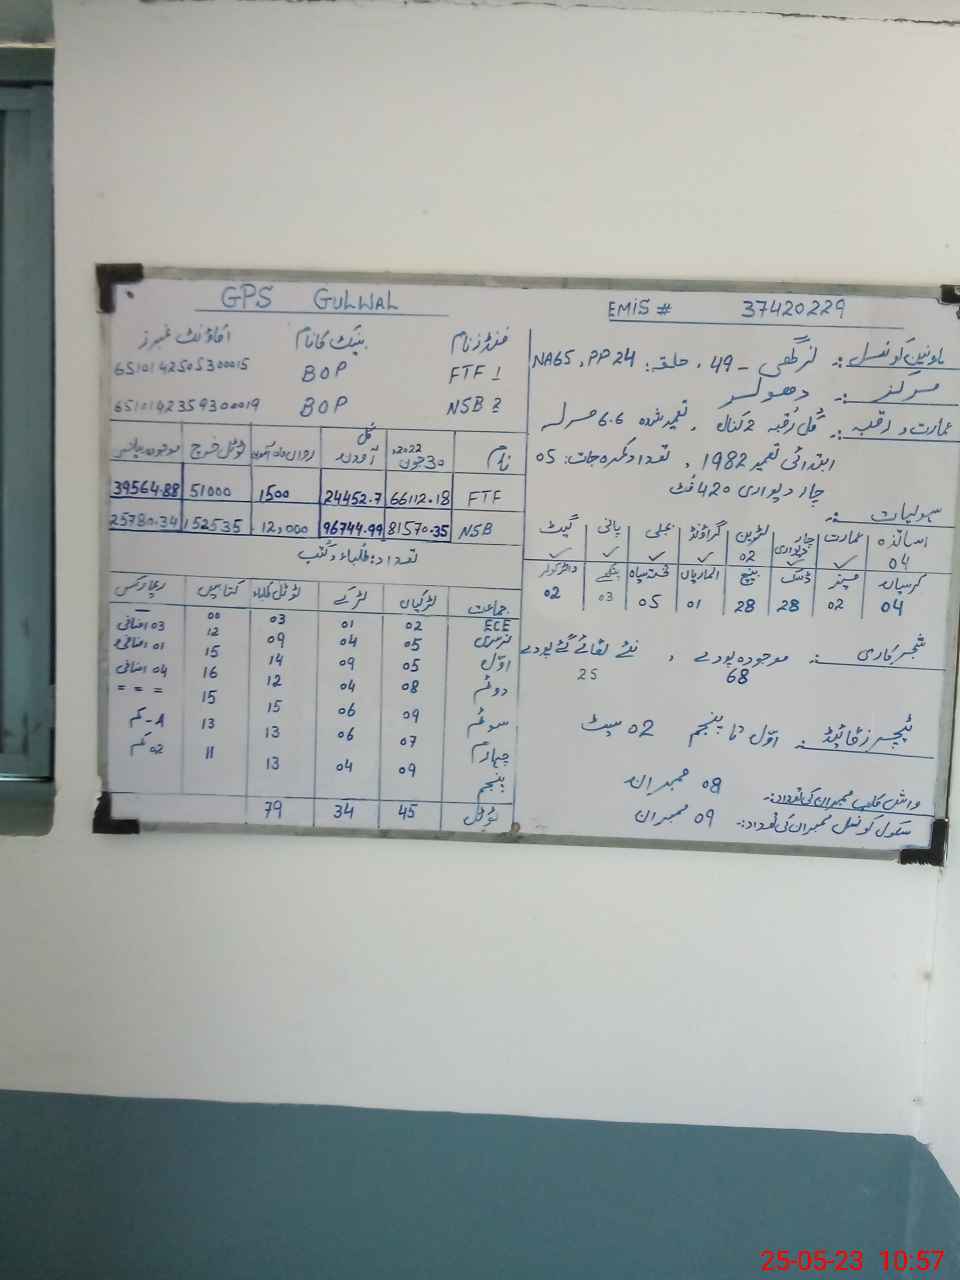 GPS GULWAL
EMIS # 37420229
فنڈز نام بینک کا نام اکاؤنٹ نمبرز
FTF 1 BOP 6510142505300015
NSB 2 BOP 6510142359300019
نام 30 جون 2022 کل آمدن رواں ماہ آمدن ٹوٹل خرچ موجودہ بیلنس
FTF 66112.18 24452.7 1500 51000 39564.88
NSB 81570.35 96744.99 12,000 152535 25780.34
تعداد: طلباء و کتب
جماعت لڑکیاں لڑکے ٹوٹل طلباء کتابیں ریمارکس
ECE 02 01 03 00 —
نرسری 05 04 09 12 03 اضافی
اول 05 09 14 15 01 اضافی
دوئم 08 04 12 16 04 اضافی
سوئم 09 06 15 15 = = =
چہارم 07 06 13 13 کم
پنجم 09 04 13 11 02 کم
ٹوٹل 45 34 79
یونین کونسل :۔ 49 ۔ حلقہ : NA65, PP24
مرکز :۔
عمارت و رقبہ :۔ کل رقبہ 2 کنال ، تعمیر شدہ 6.6 مرلہ
ابتدائی تعمیر 1982 ، تعداد کمرہ جات : 05
چار دیواری 420 فٹ
سہولیات :۔
اساتذہ عمارت چار دیواری لٹرین گراؤنڈ بجلی پانی گیٹ
04 ✓ ✓ 02 ✓ ✓ ✓ ✓
کرسیاں میز ڈسک بینچ الماریاں تختہ سیاہ پنکھے واٹر کولر
04 02 28 28 01 05 03 02
شجر کاری :۔ موجودہ پودے ، نئے لگائے گئے پودے
68 25
ٹیچرز گائیڈ :۔ اول تا پنجم 02 سیٹ
واش کلب ممبران کی تعداد :۔ 08 ممبران
سکول کونسل ممبران کی تعداد :۔ 09 ممبران
25-05-23 10:57